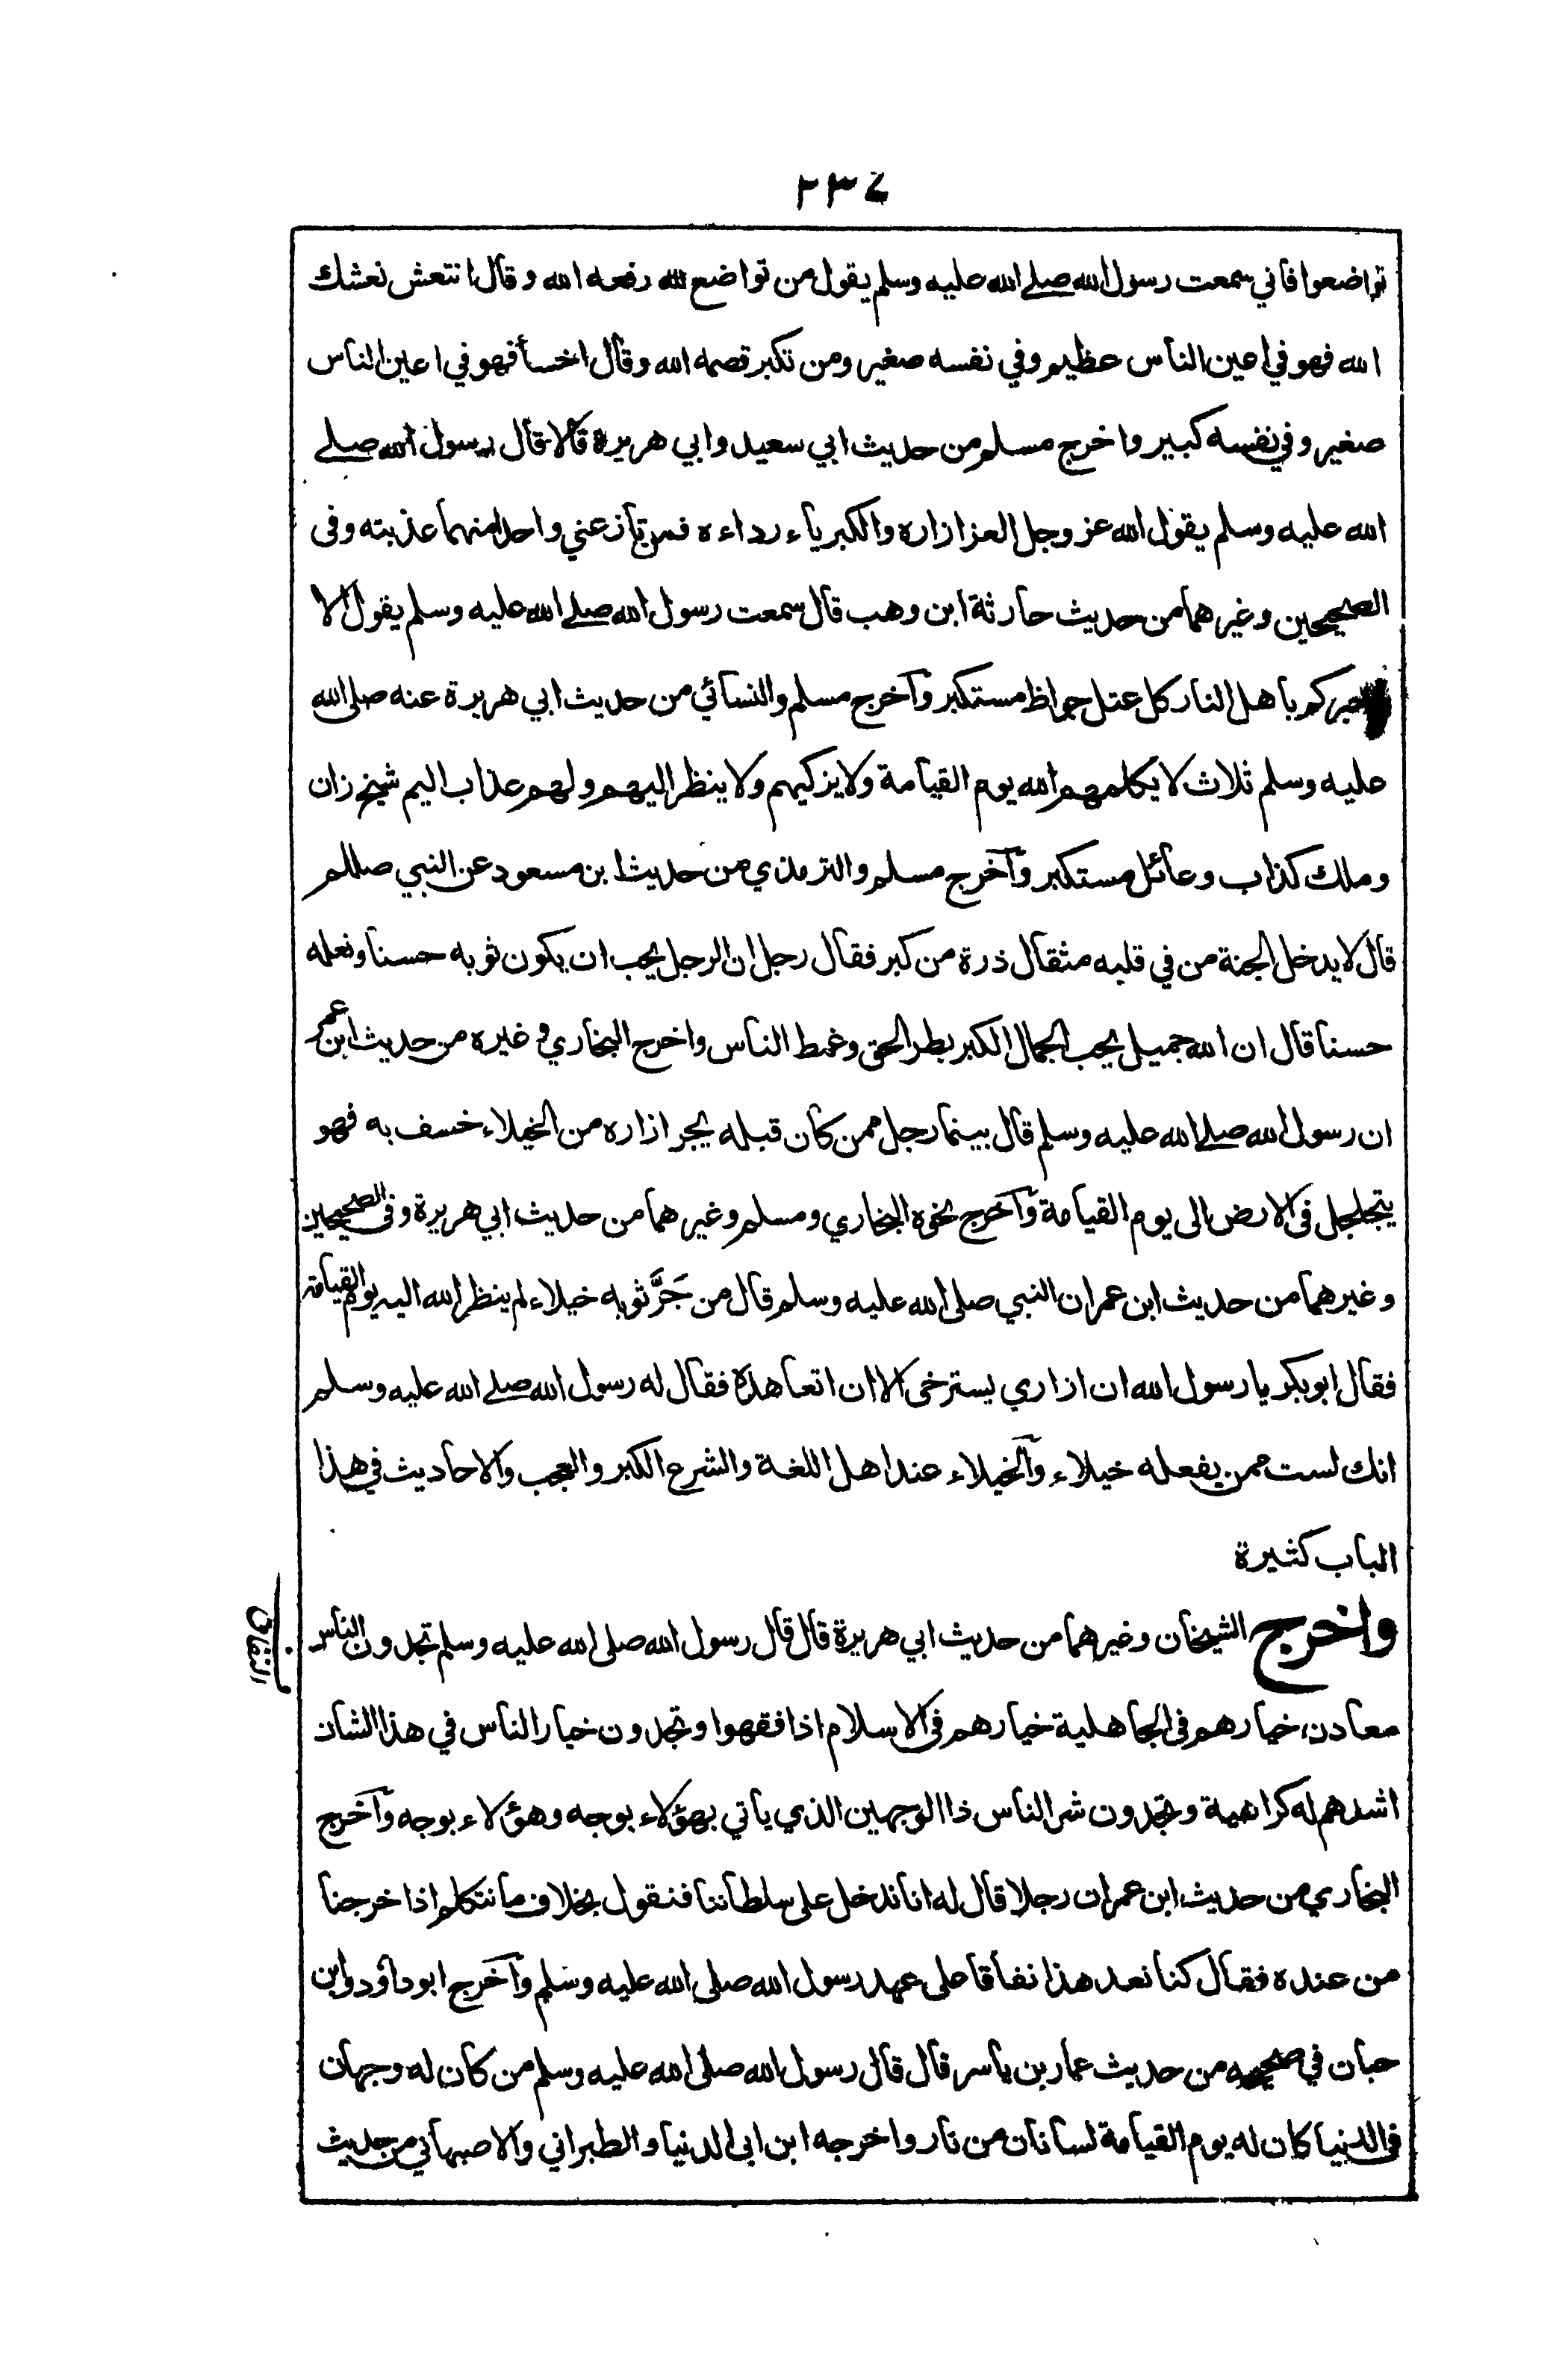 ٢٣٤
تواضعوا فاني سمعت رسول الله صلے الله عليه وسلم يقول من تواضع لله رفعه الله وقال انتعش نعشك
الله فهو في اعين الناس عظيم وفي نفسه صغير ومن تكبر قصمه الله وقال اخسأ فهو في اعين الناس
صغير وفي نفسه كبير واخرج مسلم من حديث ابي سعيد وابي هريرة قالا قال رسول الله صلے
الله عليه وسلم يقول الله عز وجل العز ازاره والكبرياء رداءه فمن ينازعني واحدا منهما عذبته وفى
الصحيحين وغيرهما من حديث حارثة ابن وهب قال سمعت رسول الله صلے الله عليه وسلم يقول الا
اخبركم باهل النار كل عتل جواظ مستكبر وآخرج مسلم والنسائي من حديث ابي هريرة عنه صلى الله
عليه وسلم ثلاث لا يكلمهم الله يوم القيامة ولا يزكيهم ولا ينظر اليهم ولهم عذاب اليم شيخ زان
وملك كذاب وعائل مستكبر وآخرج مسلم والترمذي من حديث ابن مسعود عن النبي صللم
قال لا يدخل الجنة من في قلبه مثقال ذرة من كبر فقال رجل ان الرجل يحب ان يكون ثوبه حسنا ونعله
حسنا قال ان الله جميل يحب الجمال الكبر بطر الحق وغمط الناس واخرج البخاري و غيره من حديث ابن عمر
ان رسول الله صلے الله عليه وسلم قال بينما رجل ممن كان قبله يجر ازاره من الخيلاء خسف به فهو
يتجلجل فى الارض الى يوم القيامة وآخرج نحوه البخاري ومسلم وغيرهما من حديث ابي هريرة وفى الصحيحين
وغيرهما من حديث ابن عمر ان النبي صلى الله عليه وسلم قال من جَرَّ ثوبه خيلاء لم ينظر الله اليه يوم القيامة
فقال ابو بكر يا رسول الله ان ازاري يسترخى الا ان اتعاهده فقال له رسول الله صلے الله عليه وسلم
انك لست ممن يفعله خيلاء والخيلاء عند اهل اللغة والشرع الكبر والعجب والاحاديث في هذا
الباب كثيرة
واخرج الشيخان وغيرهما من حديث ابي هريرة قال قال رسول الله صلى الله عليه وسلم تجدون الناس
النفاق
معادن خيارهم فى الجاهلية خيارهم فى الاسلام اذا فقهوا وتجدون خيار الناس في هذا الشان
اشدهم له كراهية وتجدون شر الناس ذا الوجهين الذي ياتي بهؤلاء بوجه وهؤلاء بوجه وآخرج
البخاري من حديث ابن عمر ان رجلا قال له انا ندخل على سلطاننا فنقول بخلاف ما نتكلم اذا خرجنا
من عنده فقال كنا نعد هذا نفاقا على عهد رسول الله صلى الله عليه وسلم وآخرج ابو داؤد وابن
حبان في صحيحه من حديث عمار بن ياسر قال قال رسول الله صلى الله عليه وسلم من كان له وجهان
فى الدنيا كان له يوم القيامة لسانان من نار واخرجه ابن ابى الدنيا والطبراني والاصبهاني من حديث